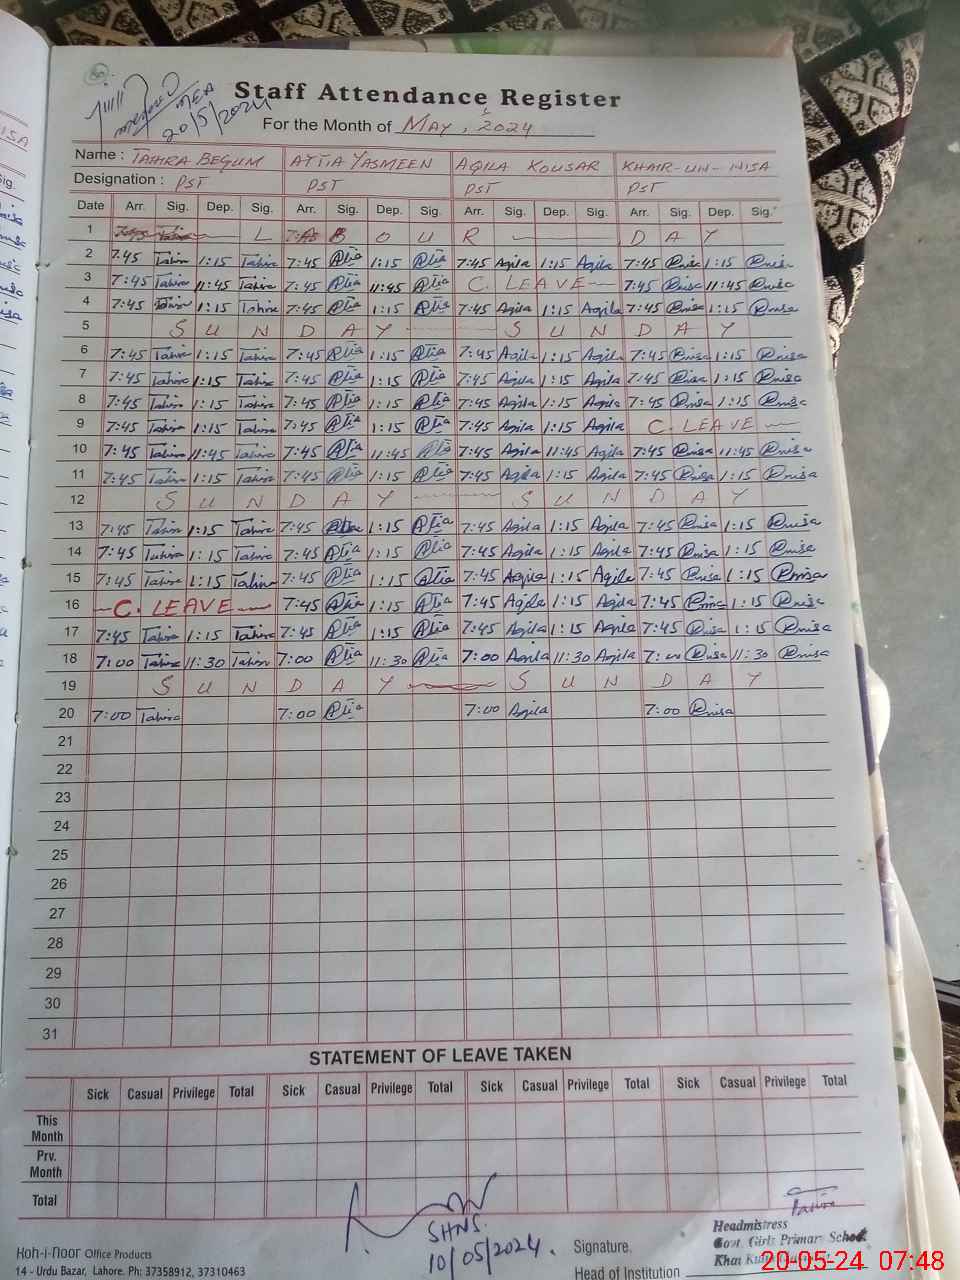 MEA
20/5/2024
Staff Attendance Register
For the Month of MAY, 2024
Name : TAHIRA BEGUM ATTIA YASMEEN AQILA KOUSAR KHAIR-UN-NISA
Designation : PST PST PST PST
Date Arr. Sig. Dep. Sig. Arr. Sig. Dep. Sig. Arr. Sig. Dep. Sig. Arr. Sig. Dep. Sig.
1 L A B O U R DAY
2 7.45 Tahira 1:15 Tahira 7:45 Attia 1:15 Attia 7:45 Aqila 1:15 Aqila 7:45 Qnisa 1:15 Qnisa
3 7:45 Tahira 11:45 Tahira 7:45 Attia 11:45 Attia C. LEAVE 7:45 Qnisa 11:45 Qnisa
4 7:45 Tahira 1:15 Tahira 7:45 Attia 1:15 Attia 7:45 Aqila 1:15 Aqila 7:45 Qnisa 1:15 Qnisa
5 SUNDAY SUNDAY
6 7:45 Tahira 1:15 Tahira 7:45 Attia 1:15 Attia 7:45 Aqila 1:15 Aqila 7:45 Qnisa 1:15 Qnisa
7 7:45 Tahira 1:15 Tahira 7:45 Attia 1:15 Attia 7:45 Aqila 1:15 Aqila 7:45 Qnisa 1:15 Qnisa
8 7:45 Tahira 1:15 Tahira 7:45 Attia 1:15 Attia 7:45 Aqila 1:15 Aqila 7:45 Qnisa 1:15 Qnisa
9 7:45 Tahira 1:15 Tahira 7:45 Attia 1:15 Attia 7:45 Aqila 1:15 Aqila C. LEAVE
10 7:45 Tahira 11:45 Tahira 7:45 Attia 11:45 Attia 7:45 Aqila 11:45 Aqila 7:45 Qnisa 11:45 Qnisa
11 7:45 Tahira 1:15 Tahira 7:45 Attia 1:15 Attia 7:45 Aqila 1:15 Aqila 7:45 Qnisa 1:15 Qnisa
12 SUNDAY SUNDAY
13 7:45 Tahira 1:15 Tahira 7:45 Attia 1:15 Attia 7:45 Aqila 1:15 Aqila 7:45 Qnisa 1:15 Qnisa
14 7:45 Tahira 1:15 Tahira 7:45 Attia 1:15 Attia 7:45 Aqila 1:15 Aqila 7:45 Qnisa 1:15 Qnisa
15 7:45 Tahira 1:15 Tahira 7:45 Attia 1:15 Attia 7:45 Aqila 1:15 Aqila 7:45 Qnisa 1:15 Qnisa
16 C. LEAVE 7:45 Attia 1:15 Attia 7:45 Aqila 1:15 Aqila 7:45 Qnisa 1:15 Qnisa
17 7:45 Tahira 1:15 Tahira 7:45 Attia 1:15 Attia 7:45 Aqila 1:15 Aqila 7:45 Qnisa 1:15 Qnisa
18 7:00 Tahira 11:30 Tahira 7:00 Attia 11:30 Attia 7:00 Aqila 11:30 Aqila 7:00 Qnisa 11:30 Qnisa
19 SUNDAY SUNDAY
20 7:00 Tahira 7:00 Attia 7:00 Aqila 7:00 Qnisa
21
22
23
24
25
26
27
28
29
30
31
STATEMENT OF LEAVE TAKEN
Sick Casual Privilege Total Sick Casual Privilege Total Sick Casual Privilege Total Sick Casual Privilege Total
This Month
Prv. Month
Total
SHNS.
10/05/2024.
Tahira
Koh-i-Noor Office Products
14 - Urdu Bazar, Lahore. Ph: 37358912, 37310463
Signature.
Head of Institution
Headmistress
Govt. Girls Primary School
20-05-24 07:48